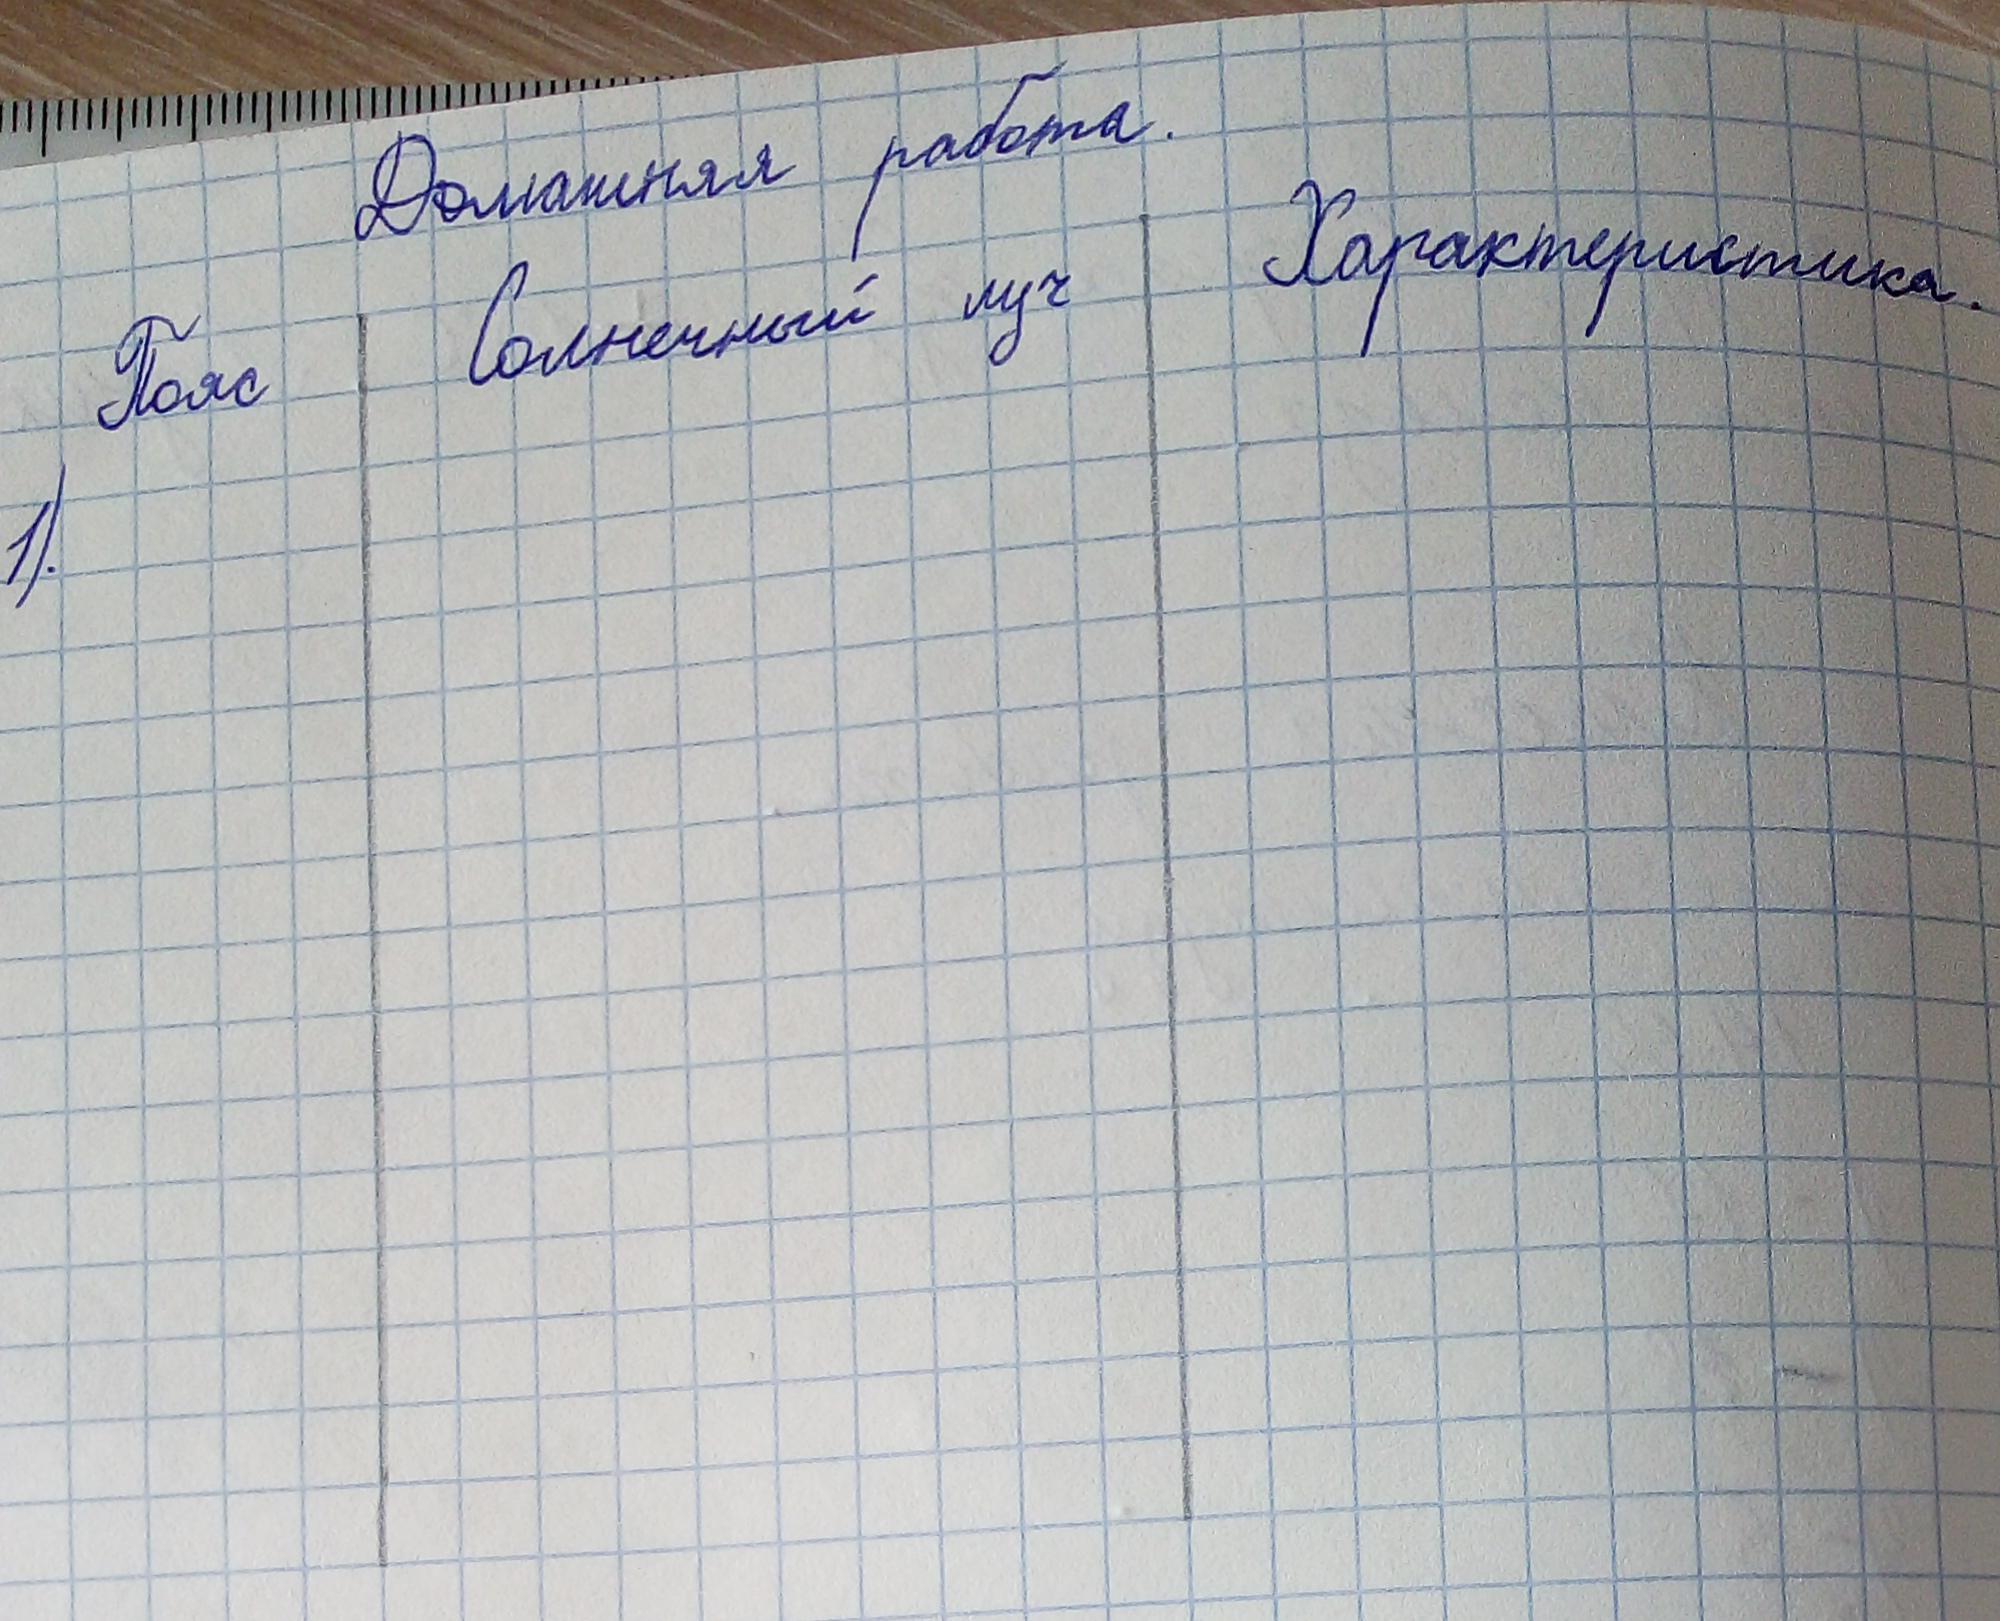 Домашняя работа.
Пояс Солнечный луч Характеристика.
1).